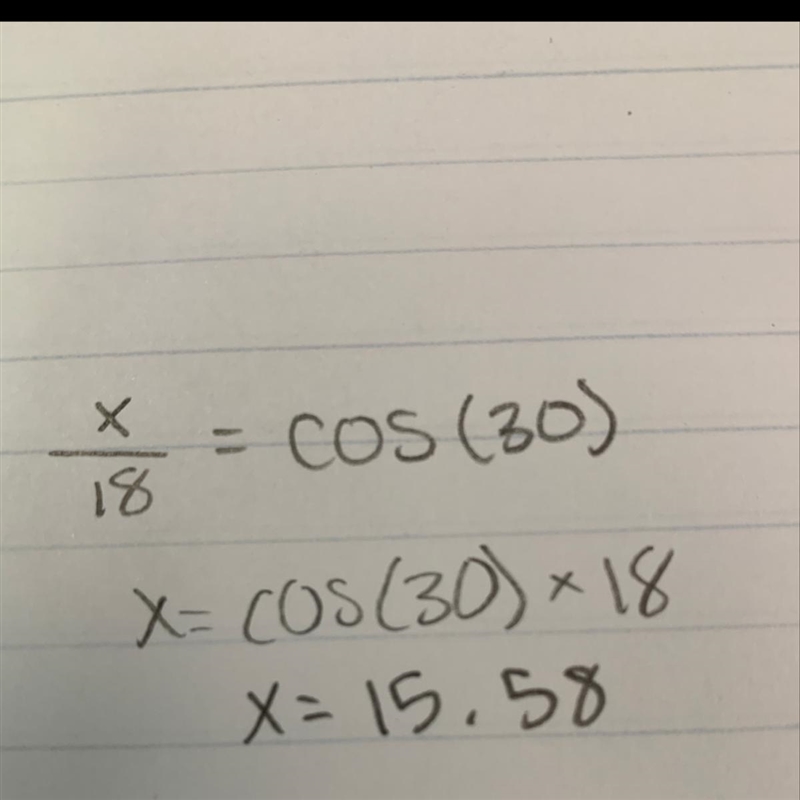 x/18 = cos(30)
x = cos(30) × 18
x = 15.58